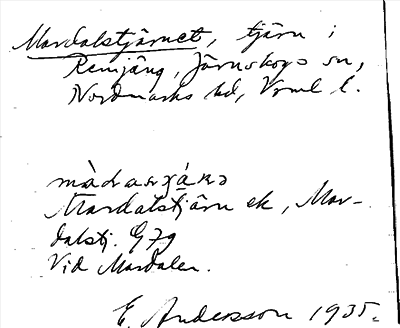 Mardalstjärnet, tjärn i
Remjäng, Järnskogs sn,
Nordmarks hd, Vrml l.
Mardalstjärn ek, Mar-
dalstj. G79
Vid Mardalen.
E. Andersson 1935.